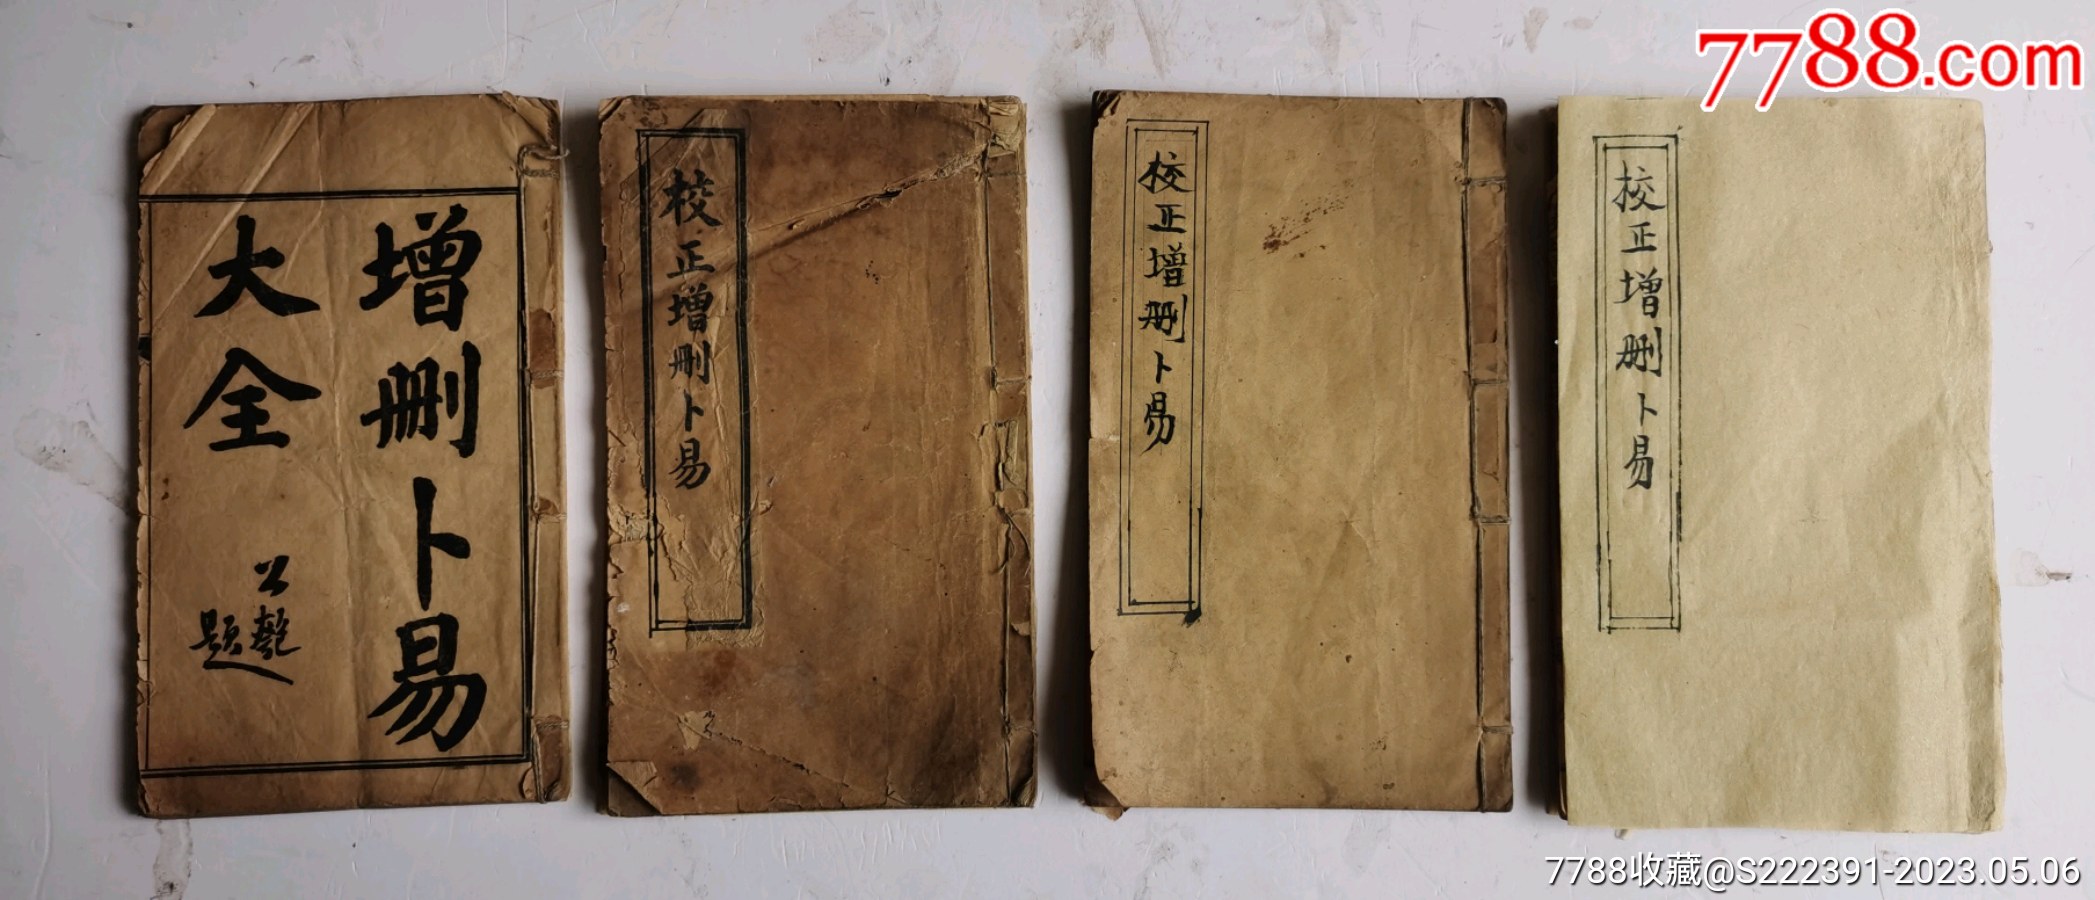 7788.com
增删卜易
大全
公
題
校正增删卜易
校正增删卜易
校正增删卜易
7788收藏@S222391-2023.05.06